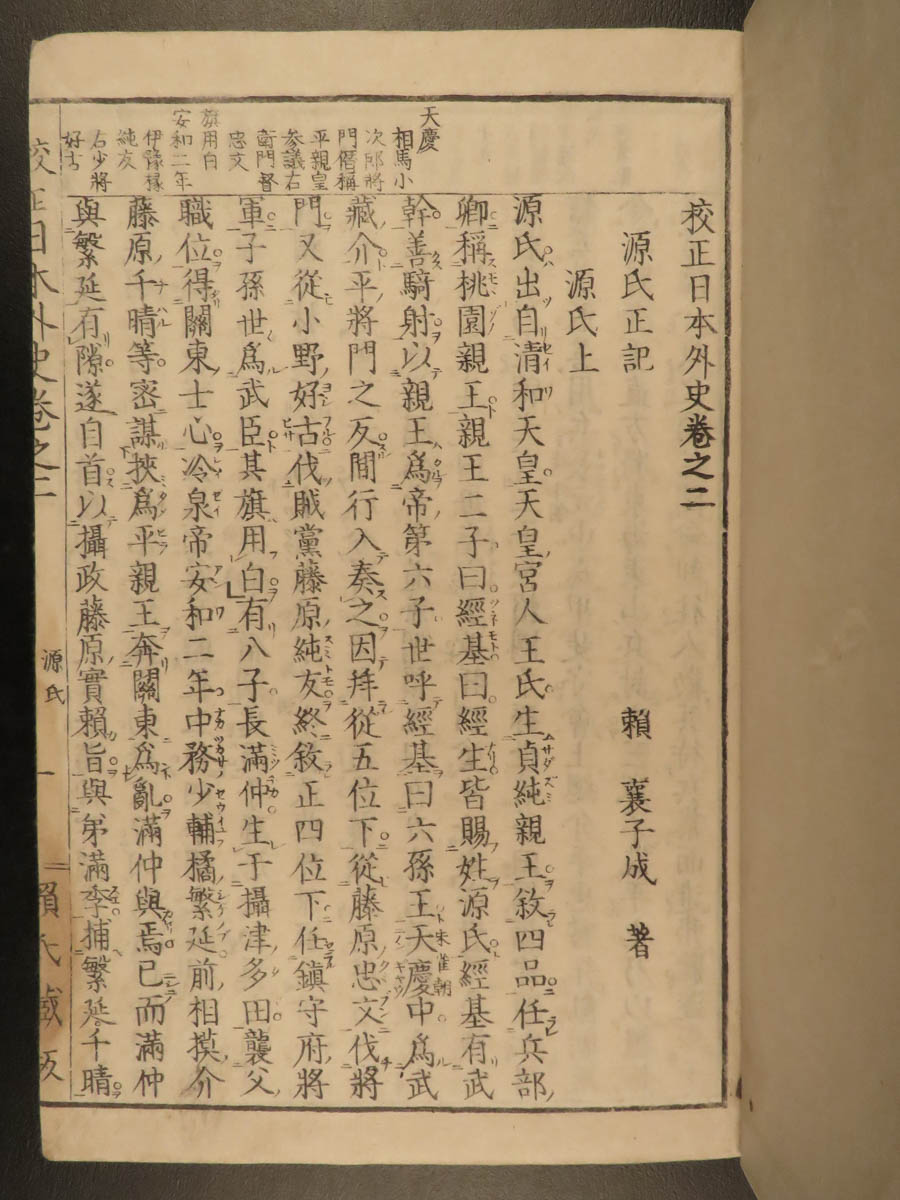 校正日本外史卷之二
源氏正記 賴襄子成 著
源氏上
源氏出自清和天皇天皇宮人王氏生貞純親王敘四品任兵部
卿稱桃園親王親王二子曰經基曰經生皆賜姓源氏經基有武
幹善騎射以親王爲帝第六子世呼經基曰六孫王天慶中爲武
朱雀朝
藏介平將門之反間行入奏之因拜從五位下從藤原忠文伐將
門又從小野好古伐賊黨藤原純友終敘正四位下任鎮守府將
軍子孫世爲武臣其旗用白有八子長滿仲生于攝津多田襲父
職位得關東士心冷泉帝安和二年中務少輔橘繁延前相摸介
藤原千晴等密謀挾爲平親王奔關東爲亂滿仲與焉已而滿仲
與繁延有隙遂自首以攝政藤原實賴旨與弟滿季捕繁延千晴
天慶
相馬小
次郎將
門僭稱
平親皇
參議右
衛門督
忠文
旗用白
安和二年
伊豫掾
純友
右少將
好古
校正日本外史卷之二
源氏
一
賴氏藏版